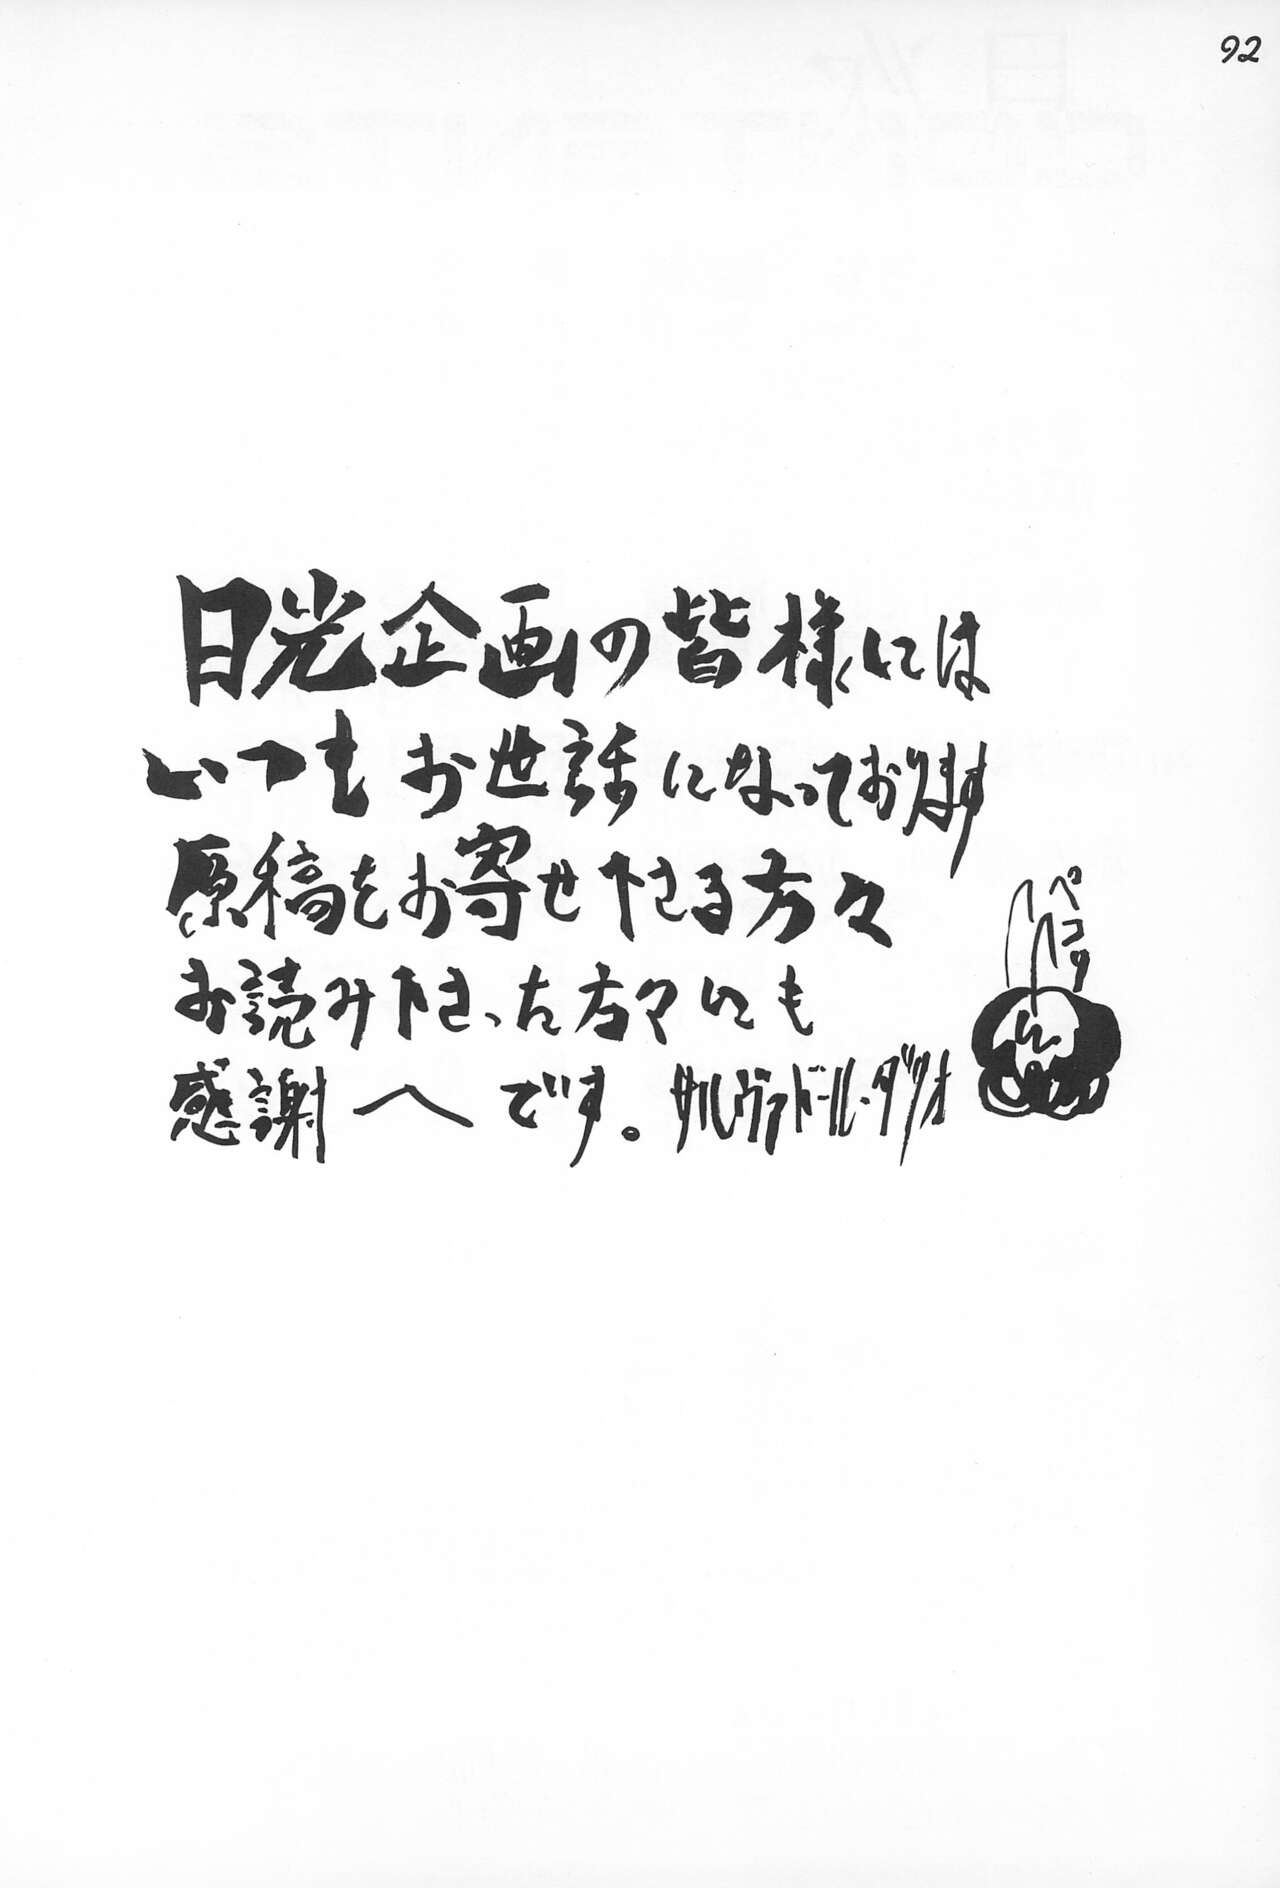 92
日光企画の皆様には
いつもお世話になっております
原稿をお寄せ下さる方々
お読み下さった方々にも
感謝へです。サルヴァドール・ダツオ
ペコリ